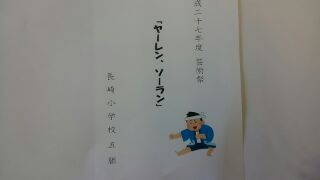 成二十七年度 芸術祭
「ヤーレン、ソーラン」
長崎小学校五